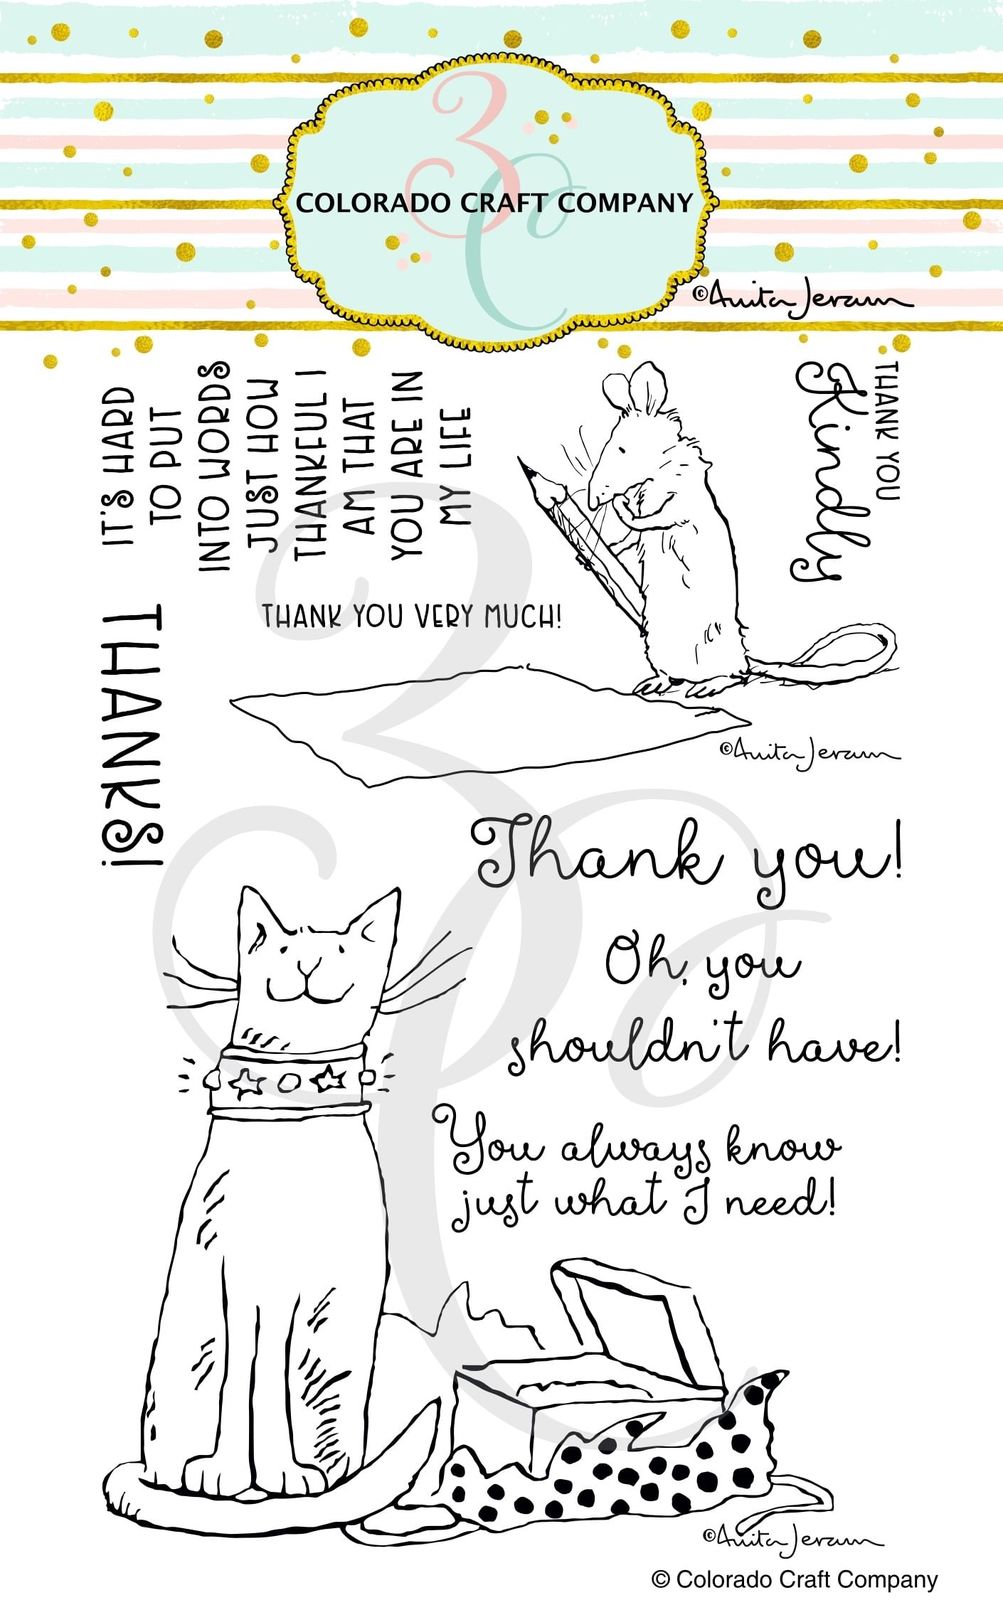 3C
COLORADO CRAFT COMPANY
Co
©Anita Jeram
IT'S HARD
TO PUT
INTO WORDS
JUST HOW
THANKFUL I
AM THAT
YOU ARE IN
MY LIFE
THANK YOU
Kindly
THANK YOU VERY MUCH!
THANKS!
©Anita Jeram
Thank you!
Oh, you
shouldn't have!
You always know
just what I need!
©Anita Jeram
© Colorado Craft Company